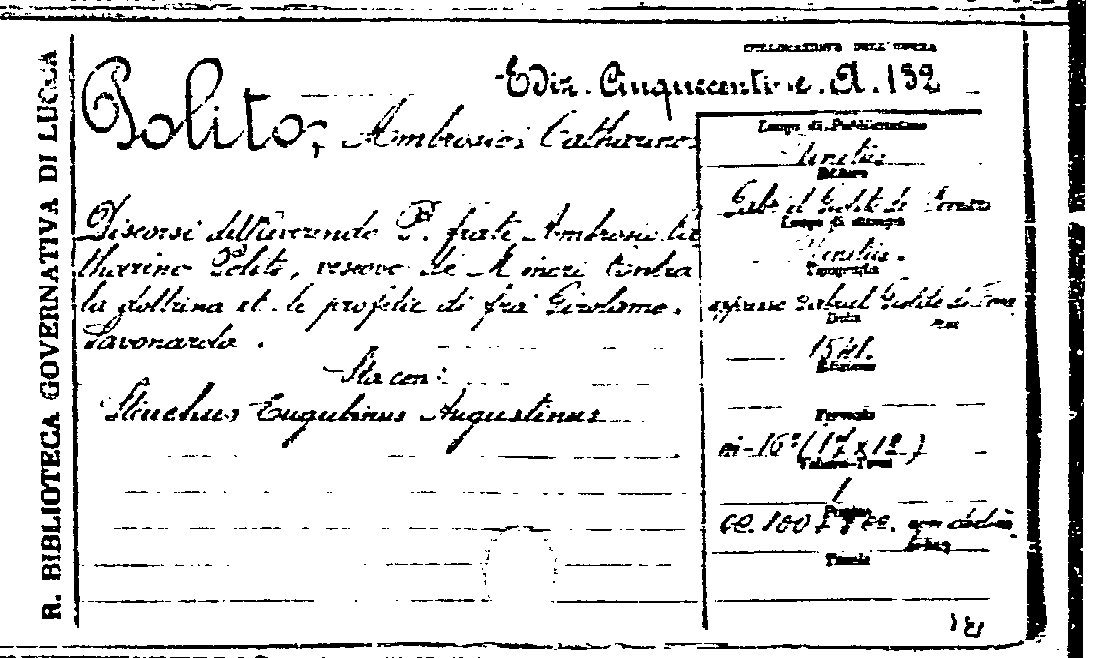 R. BIBLIOTECA GOVERNATIVA DI LUCCA
COLLOCAZIONE DELL'OPERA
Ediz. Cinquecentine. A. 132
Polito, Ambrosius Catharinus
Discorsi del Reverendo P. frate Ambrosio Ca
tharino Polito, vescovo di Minori contra
la dottrina et le profetie di fra Girolamo.
Savonarola.
Sta con:
Steuchus Eugubinus Augustinus
Luogo di Pubblicazione
Venetia
Editore
Gabriel Giolito de
Luogo di stampa
Venetia.
Tipografia
appresso Gabriel Giolito de
Data
Edizione
Formato
in-16° (17 x 12)
1
Pagine
cc. 100 +
Tavole